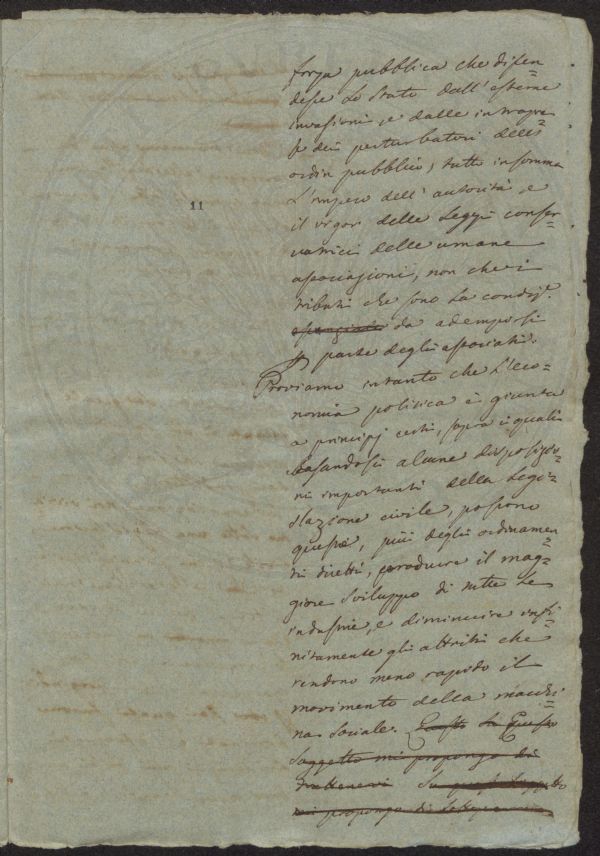 forza pubblica che difen=
desse lo stato dall'esterne
invasioni e dalle intrapre=
se dei perturbatori dell'
ordin pubblico, tutto insomma
L'impero dell'autorità, e
11
il vigor delle Leggi conser=
vatrici delle umane
associazioni, non che i
tributi che sono la condiz.e
da adempirsi
parte degli associati.
Proviamo intanto che L'eco=
nomia politica è giunta
a principj certi, sopra i quali
basandosi alcune disposizio=
ni importanti della Legi=
slazione civile, possono
queste, più degli ordinamen=
ti diretti, produrre il mag=
giore sviluppo di tutte le
industrie, e diminuire infi=
nitamente gli attriti che
rendono meno rapido il
movimento della macchi=
na sociale. Questo
soggetto mi propongo di
trattenervi
mi propongo di